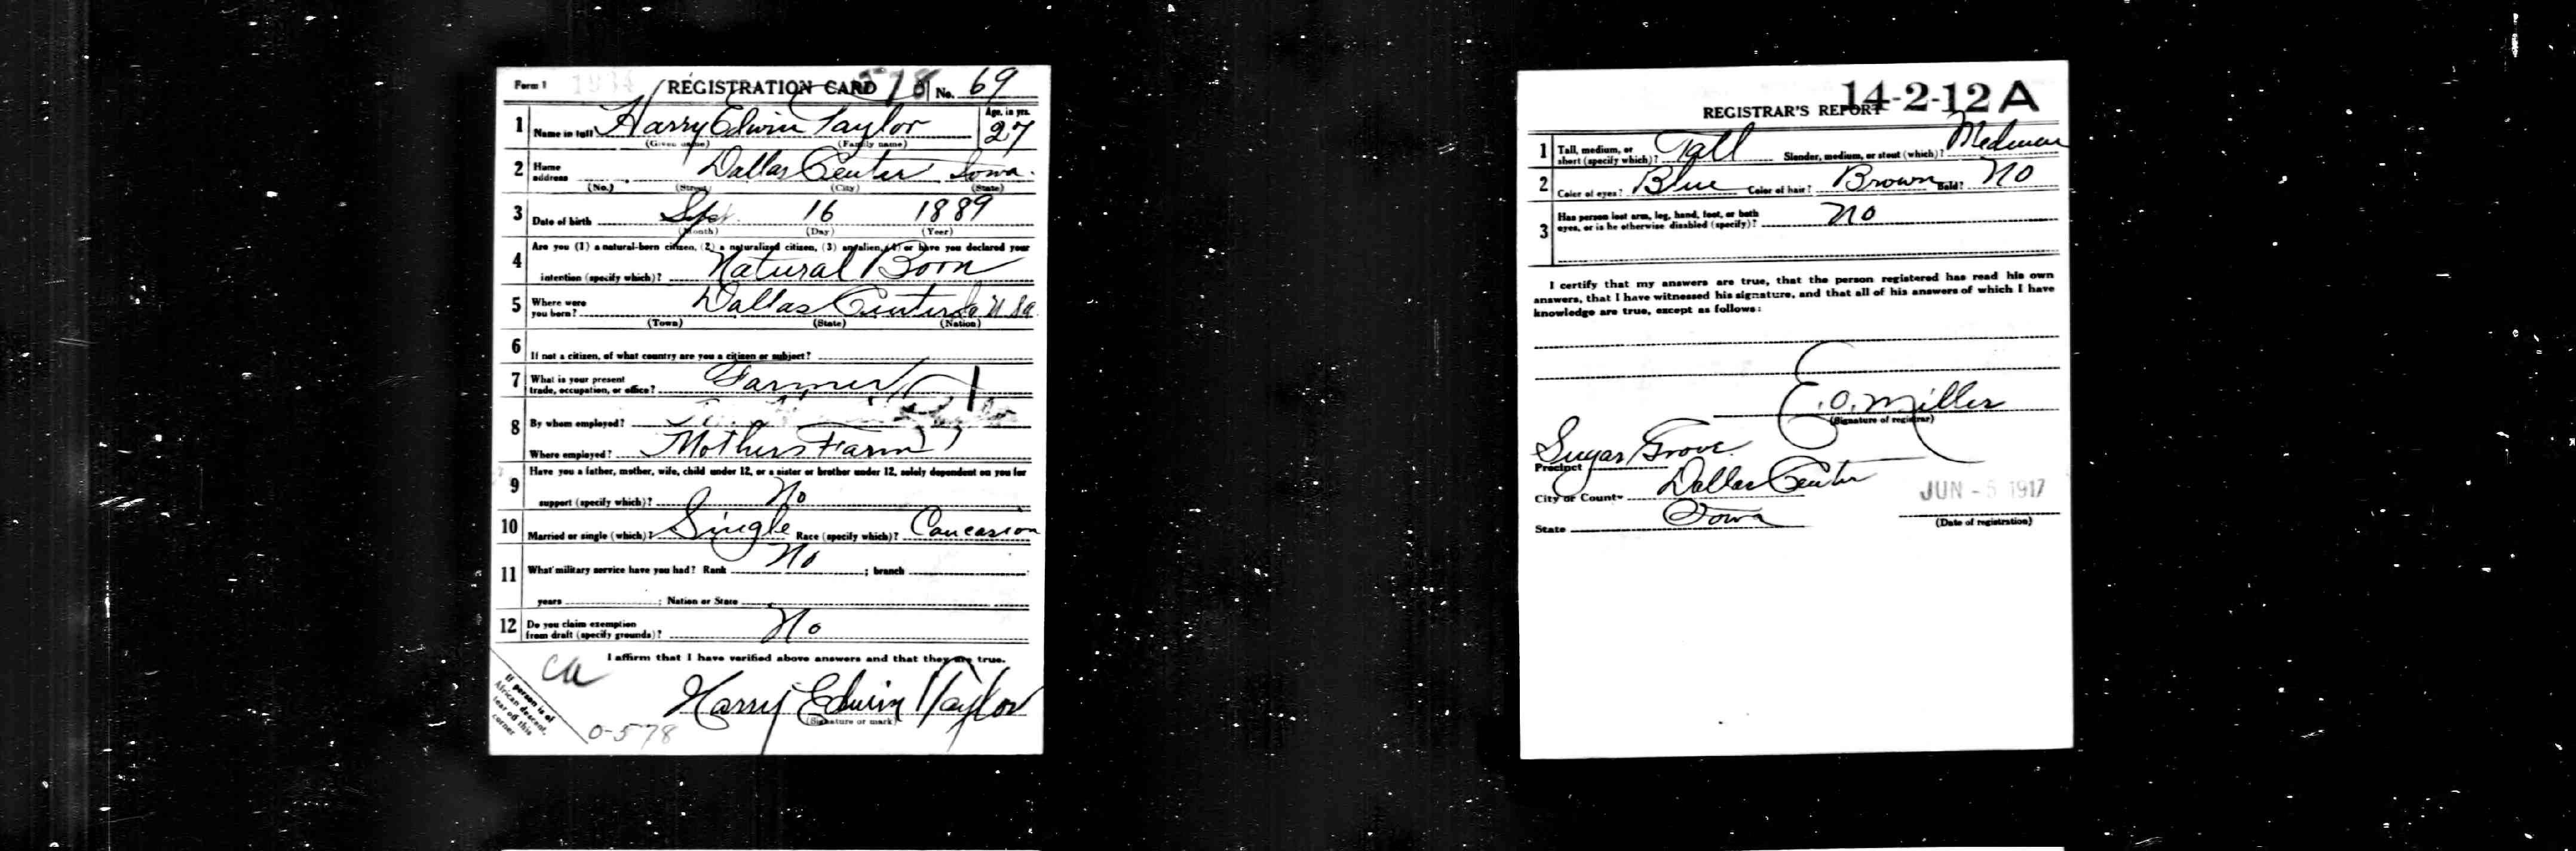 Form 1 1934 REGISTRATION CARD 578 No. 69
1 Name in full Harry Edwin Taylor Age, in yrs. 27
(Given name) (Family name)
2 Home address Dallas Center Iowa.
(No.) (Street) (City) (State)
3 Date of birth Sept. 16 1889
(Month) (Day) (Year)
4 Are you (1) a natural-born citizen, (2) a naturalized citizen, (3) an alien, (4) or have you declared your
intention (specify which)? Natural Born
5 Where were you born? Dallas Center Ia U Sa.
(Town) (State) (Nation)
6 If not a citizen, of what country are you a citizen or subject?
7 What is your present trade, occupation, or office? Farmer
8 By whom employed?
Where employed? Mothers Farm
9 Have you a father, mother, wife, child under 12, or a sister or brother under 12, solely dependent on you for
support (specify which)? No
10 Married or single (which)? Single Race (specify which)? Caucasion
11 What military service have you had? Rank No ; branch
years ; Nation or State
12 Do you claim exemption from draft (specify grounds)? No
I affirm that I have verified above answers and that they are true.
Ca
Harry Edwin Taylor
(Signature or mark)
If person is of
African descent,
tear off this
corner
0-578
14-2-12 A
REGISTRAR'S REPORT
1 Tall, medium, or short (specify which)? Tall Slender, medium, or stout (which)? Medium
2 Color of eyes? Blue Color of hair? Brown Bald? No
3 Has person lost arm, leg, hand, foot, or both
eyes, or is he otherwise disabled (specify)? No
I certify that my answers are true, that the person registered has read his own
answers, that I have witnessed his signature, and that all of his answers of which I have
knowledge are true, except as follows:
E. O. Miller
(Signature of registrar)
Precinct Sugar Grove
City or County Dallas Center
State Iowa
JUN - 5 1917
(Date of registration)